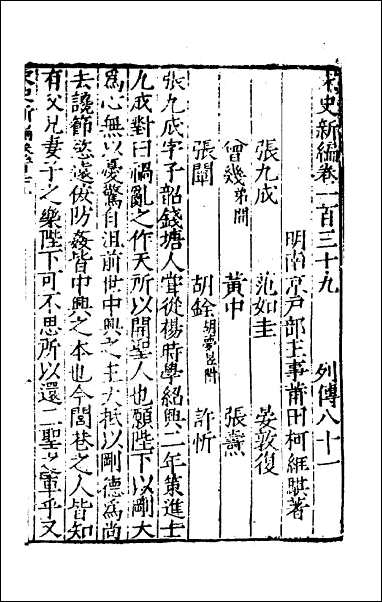 宋史新編卷一百三十九 列傳八十一
明南京户部主事莆田柯維騏著
張九成 范如圭 晏敦復
曾幾弟開 黃中 張燾
張闡 胡銓胡夢昱附 許忻
張九成字子韶錢塘人嘗從楊時學紹興二年策進士
九成對曰禍亂之作天所以開聖人也願陛下以剛大
爲心無以憂驚自沮前世中興之主大抵以剛德爲尚
去讒節慾遠佞防姦皆中興之本也今閭巷之人皆知
有父兄妻子之樂陛下可不思所以還二聖之車乎又